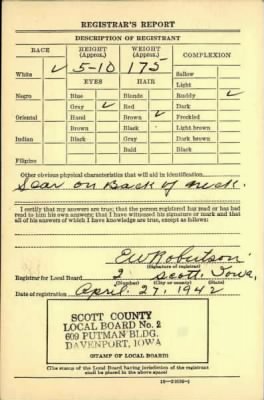 REGISTRAR'S REPORT
DESCRIPTION OF REGISTRANT
RACE HEIGHT (Approx.) WEIGHT (Approx.) COMPLEXION
White ✓ 5-10 175 Sallow
EYES HAIR Light
Negro Blue Blonde Ruddy ✓
Gray ✓ Red Dark
Oriental Hazel Brown ✓ Freckled
Brown Black Light brown
Indian Black Gray Dark brown
Bald Black
Filipino
Other obvious physical characteristics that will aid in identification
Scar on Back of neck.
I certify that my answers are true; that the person registered has read or has had
read to him his own answers; that I have witnessed his signature or mark and that
all of his answers of which I have knowledge are true, except as follows:
E W Robertson
(Signature of registrar)
Registrar for Local Board 2 Scott, Iowa,
(Number) (City or county) (State)
Date of registration April 27, 1942
SCOTT COUNTY
LOCAL BOARD No. 2
609 PUTNAM BLDG.
DAVENPORT, IOWA
(STAMP OF LOCAL BOARD)
(The stamp of the Local Board having jurisdiction of the registrant
shall be placed in the above space)